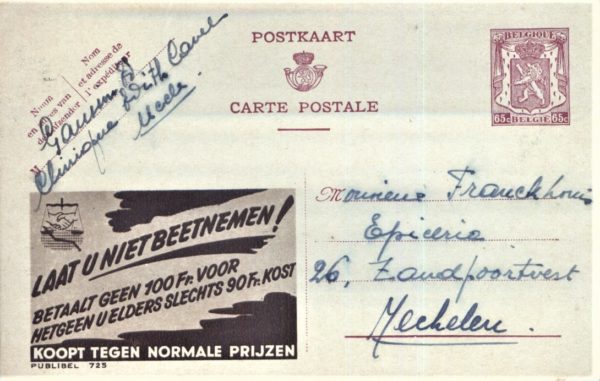 Nom
et adresse de
l'expéditeur
Naam
en adres van
de afzender
M
Edith Cavel
Clinique
Uccle
POSTKAART
CARTE POSTALE
BELGIQUE
65c BELGIË 65c
LAAT U NIET BEETNEMEN!
BETAALT GEEN 100 Fr. VOOR
HETGEEN U ELDERS SLECHTS 90 Fr. KOST
KOOPT TEGEN NORMALE PRIJZEN
PUBLIBEL 725
Monsieur Franckhuis
Epicerie
26, Zandpoortvest
Mechelen.